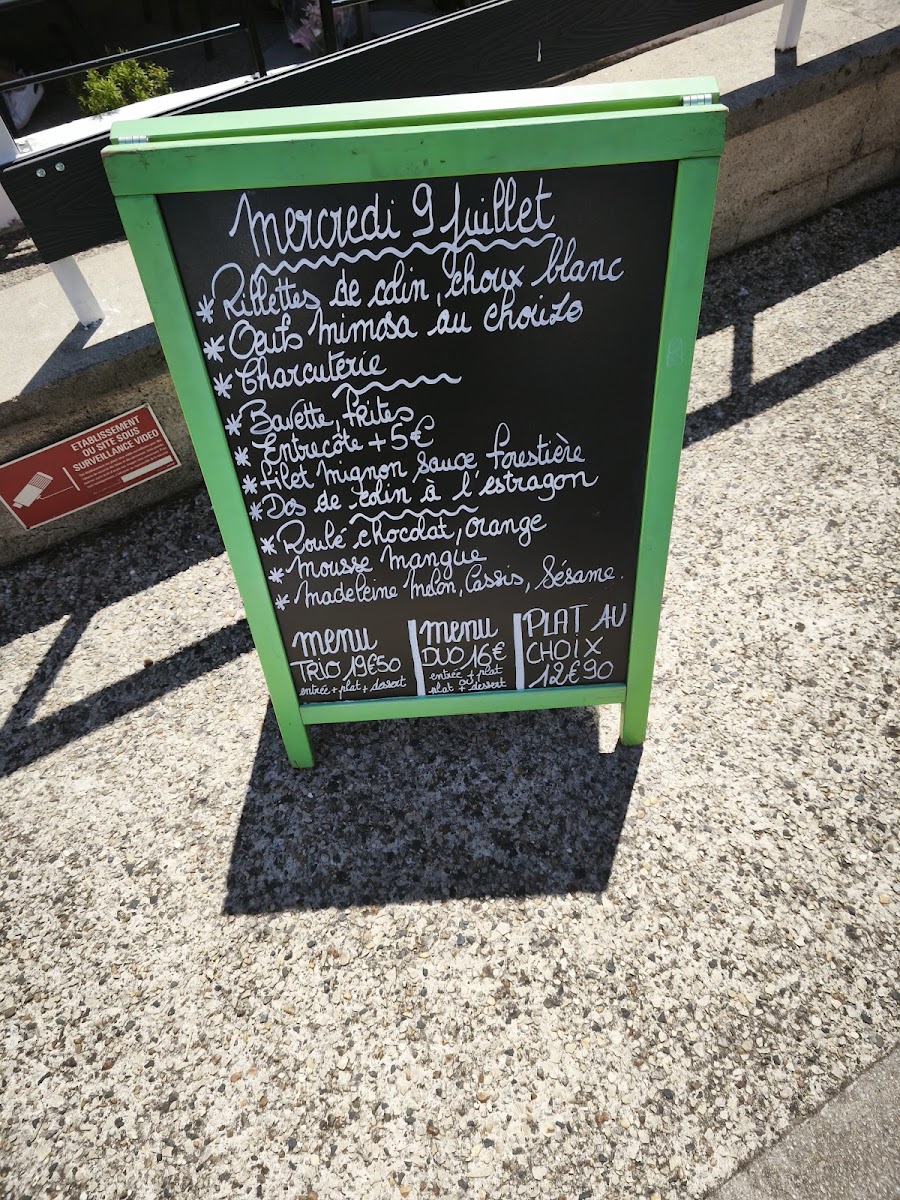 Mercredi 9 Juillet
* Rillettes de colin, choux blanc
* Oeufs mimosa au chorizo
* Charcuterie
* Bavette, frites
* Entrecôte + 5€
* filet mignon sauce forestière
* Dos de colin à l'estragon
* Roulé chocolat, orange
* Mousse mangue
* Madeleine melon, Cassis, Sésame.
menu
TRIO 19€50
entrée + plat + dessert
menu
DUO 16€
entrée + plat
ou
plat + dessert
PLAT AU
CHOIX
12€90
ETABLISSEMENT
OU SITE SOUS
SURVEILLANCE VIDEO